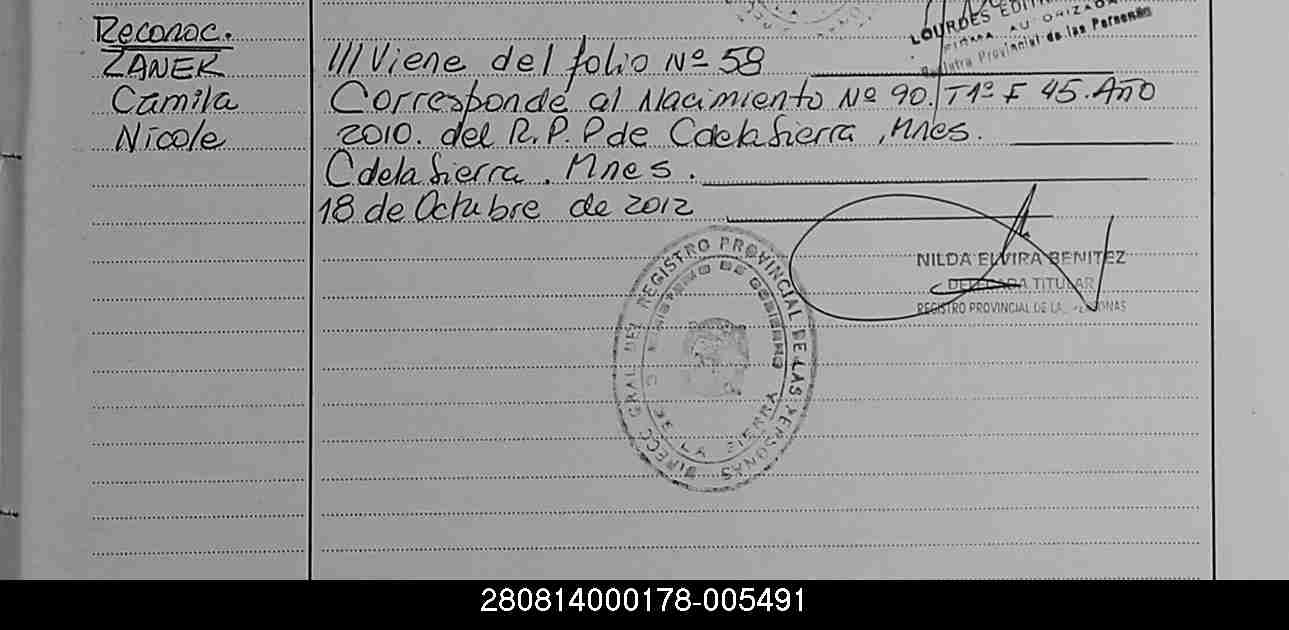 LOURDES EDITH
FIRMA AUTORIZADA
Registro Provincial de las Personas
Reconoc.
ZANEK
Camila
Nicole
///Viene del folio Nº 58
Corresponde al Nacimiento Nº 90. T1º F 45. Año
2010. del R.P.P de C de la Sierra, Mnes.
C de la Sierra. Mnes.
18 de Octubre de 2012
NILDA ELVIRA BENITEZ
DELEGADA TITULAR
REGISTRO PROVINCIAL DE LAS PERSONAS
DIRECC. GRAL. DEL REGISTRO PROVINCIAL DE LAS PERSONAS
MINISTERIO DE GOBIERNO
C. DE LA SIERRA
280814000178-005491